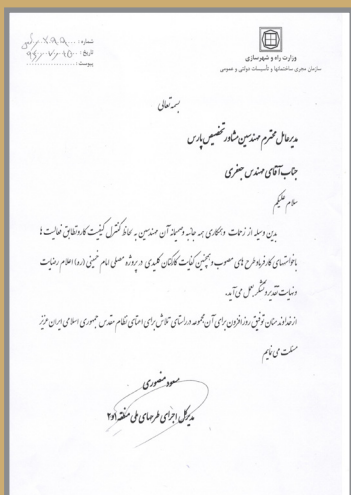 وزارت راه و شهرسازی
سازمان مجری ساختمانها و تأسیسات دولتی و عمومی
شماره :
تاریخ :
پیوست :
بسمه تعالی
مدیرعامل محترم مهندسین مشاور تخصیص پارس
جناب آقای مهندس جعفری
سلام علیکم
بدین وسیله از زحمات و همکاری همه جانبه و صمیمانه آن مهندسین به لحاظ کنترل کیفیت کار و تطابق فعالیت ها
با خواستهای کارفرما و طرح های مصوب و همچنین کفایت کارکنان کلیدی در پروژه مصلی امام خمینی (ره) اعلام رضایت
و نهایت تقدیر و تشکر بعمل می آید.
از خداوند منان توفیق روز افزون برای آن مجموعه در راستای تلاش برای اعتلای نظام مقدس جمهوری اسلامی ایران عزیز
مسئلت می نمایم
مسعود منصوری
مدیرکل اجرای طرحهای ملی منطقه ۱و۲